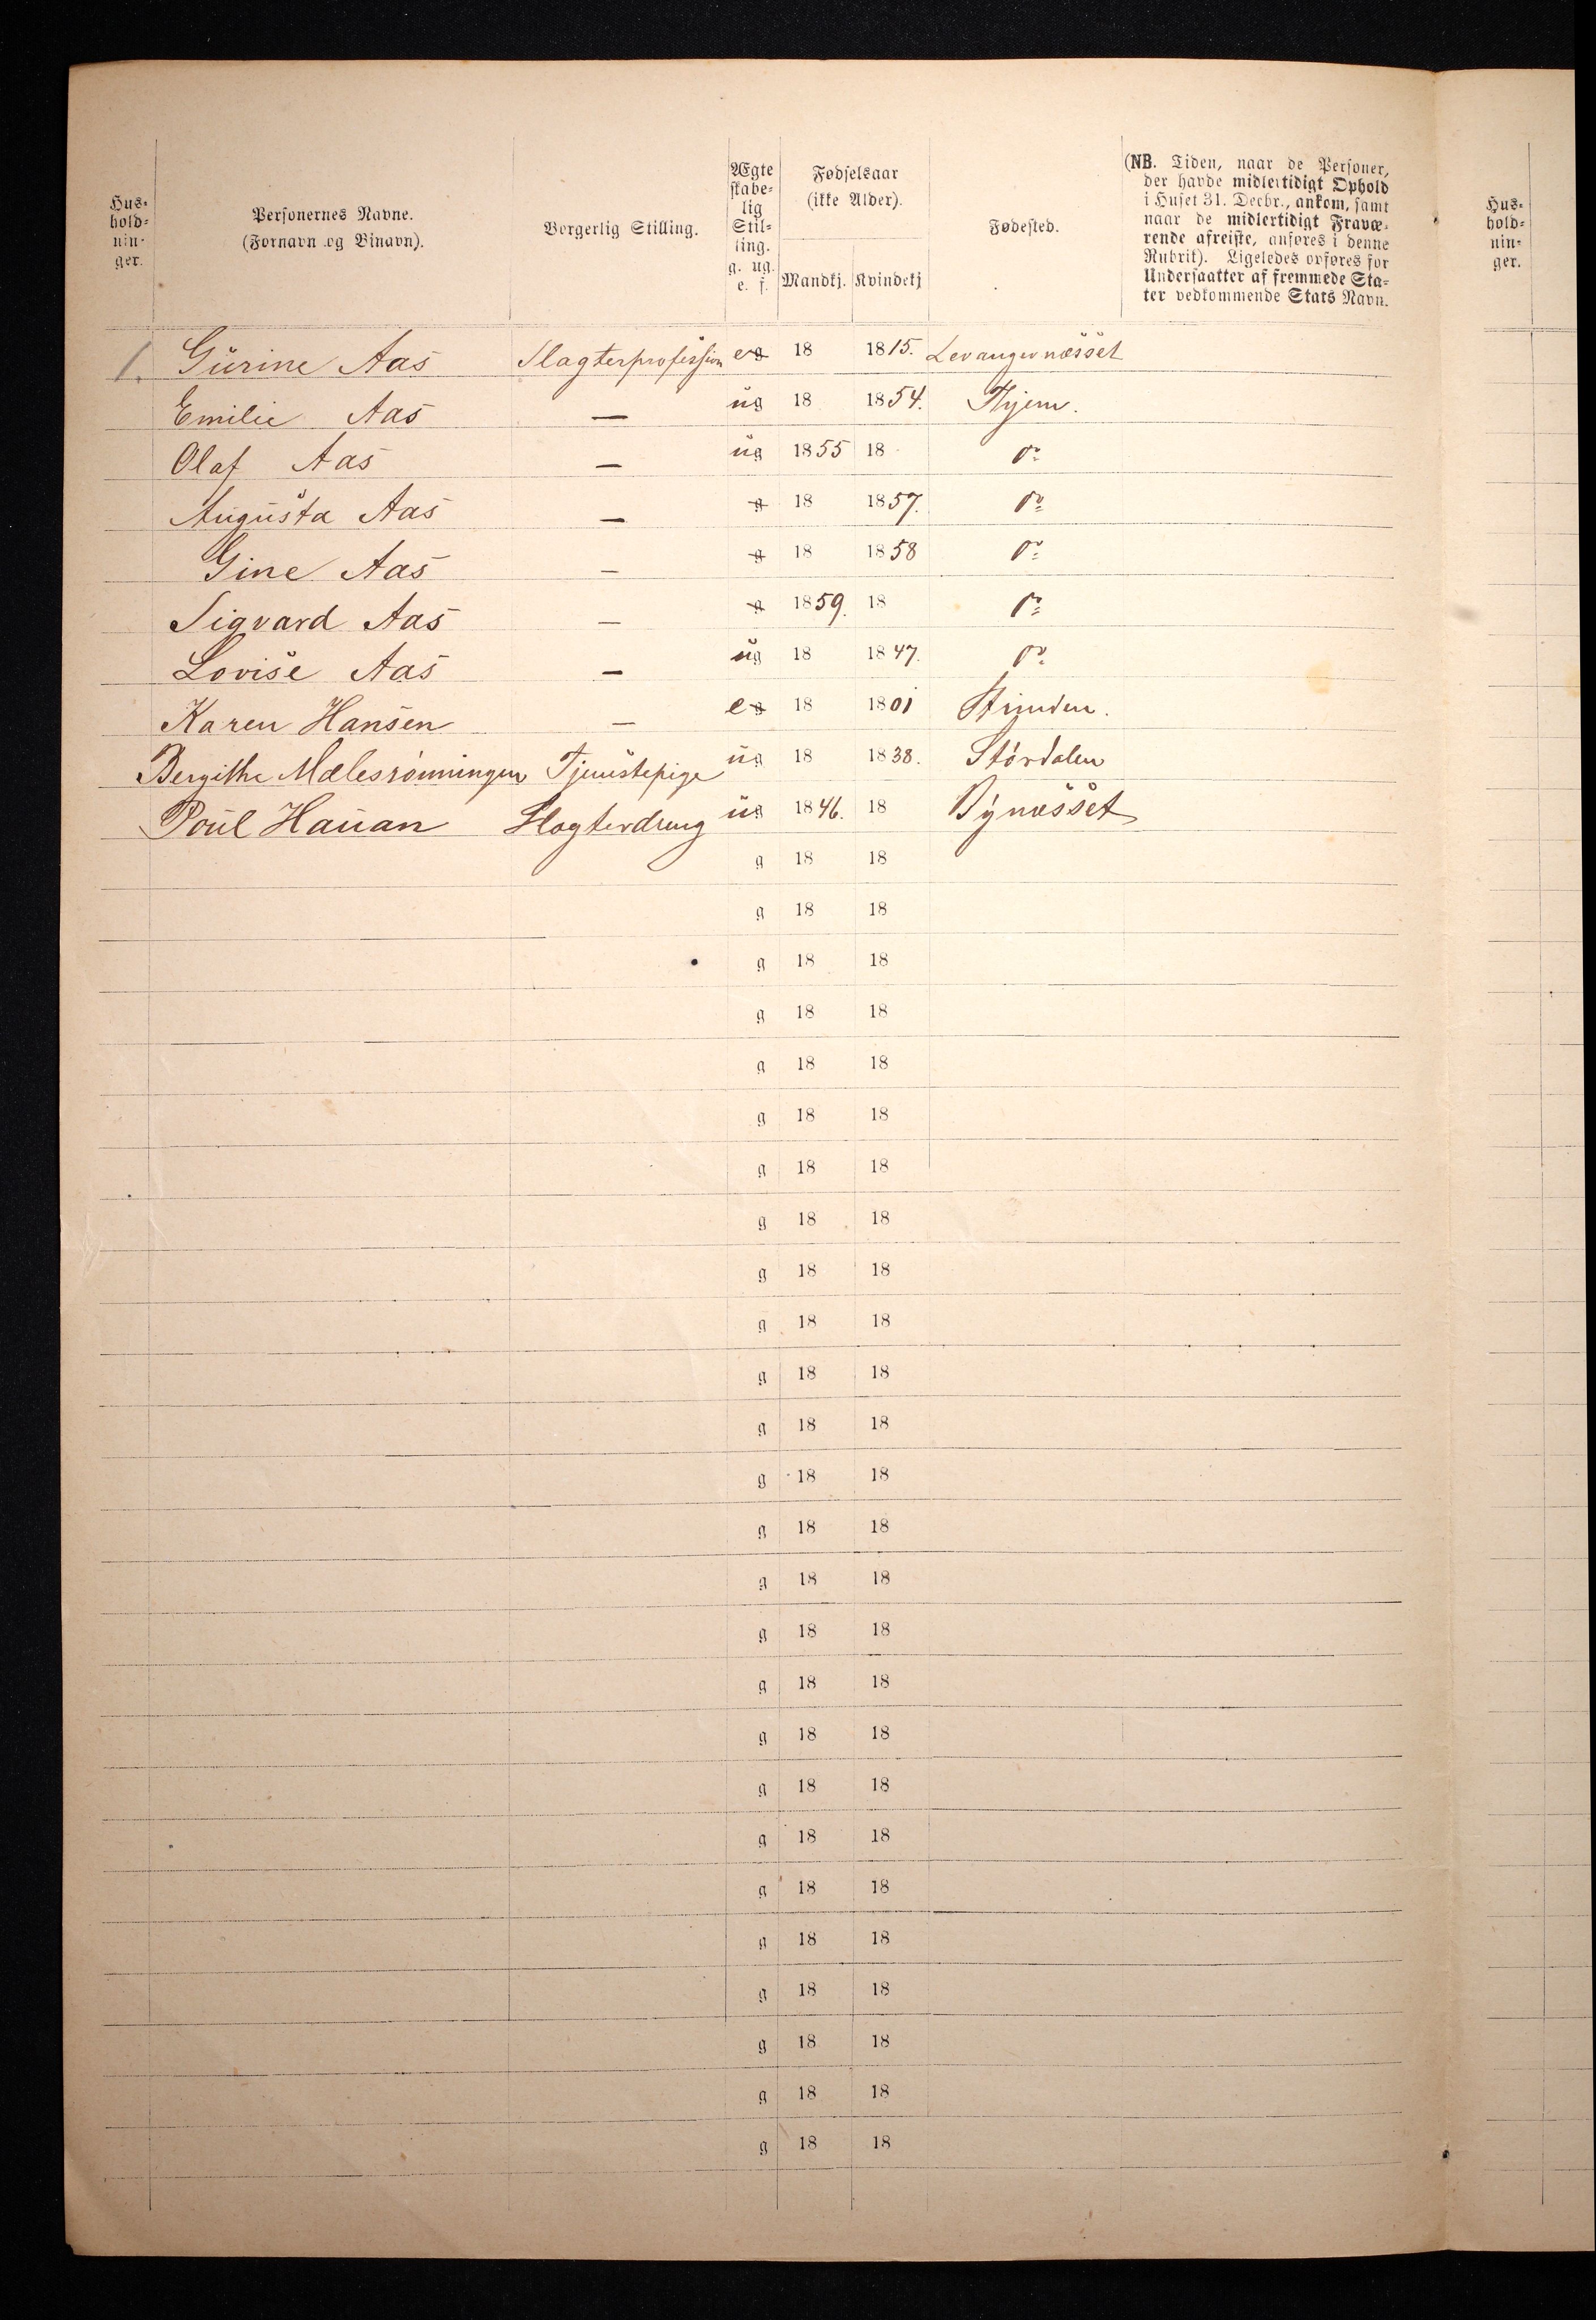 Hus-
hold-
nin-
ger.
Personernes Navne.
(Fornavn og Binavn).
Borgerlig Stilling.
Ægte
skabe-
lig
Stil-
ling.
g. ug.
e. f.
Fødselsaar
(ikke Alder).
Mandkj. Kvindekj
Fødested.
(NB. Tiden, naar de Personer,
der havde midlertidigt Ophold
i Huset 31. Decbr., ankom, samt
naar de midlertidigt Fravæ-
rende afreiste, anføres i denne
Rubrik). Ligeledes opføres for
Undersaatter af fremmede Sta-
ter vedkommende Stats Navn.
Hus-
hold-
nin-
ger.
1. Gurine Aas Slagterprofession e g 18 1815. Levangernæsset
Emilie Aas — ug 18 1854. Thjem.
Olaf Aas — ug 1855 18 do
Augusta Aas — g 18 1857. do
Gine Aas — g 18 1858 do
Sigvard Aas — g 1859. 18 do
Lovise Aas — ug 18 1847. do
Karen Hansen — e g 18 1801
Bergithe Mælesrønningen Tjenstepige ug 18 1838. Stórdalen
Poul Hauan Slagterdreng ug 1846. 18 Bynæsset
g 18 18
g 18 18
g 18 18
g 18 18
g 18 18
g 18 18
g 18 18
g 18 18
g 18 18
g 18 18
g 18 18
g 18 18
g 18 18
g 18 18
g 18 18
g 18 18
g 18 18
g 18 18
g 18 18
g 18 18
g 18 18
g 18 18
g 18 18
g 18 18
g 18 18
g 18 18